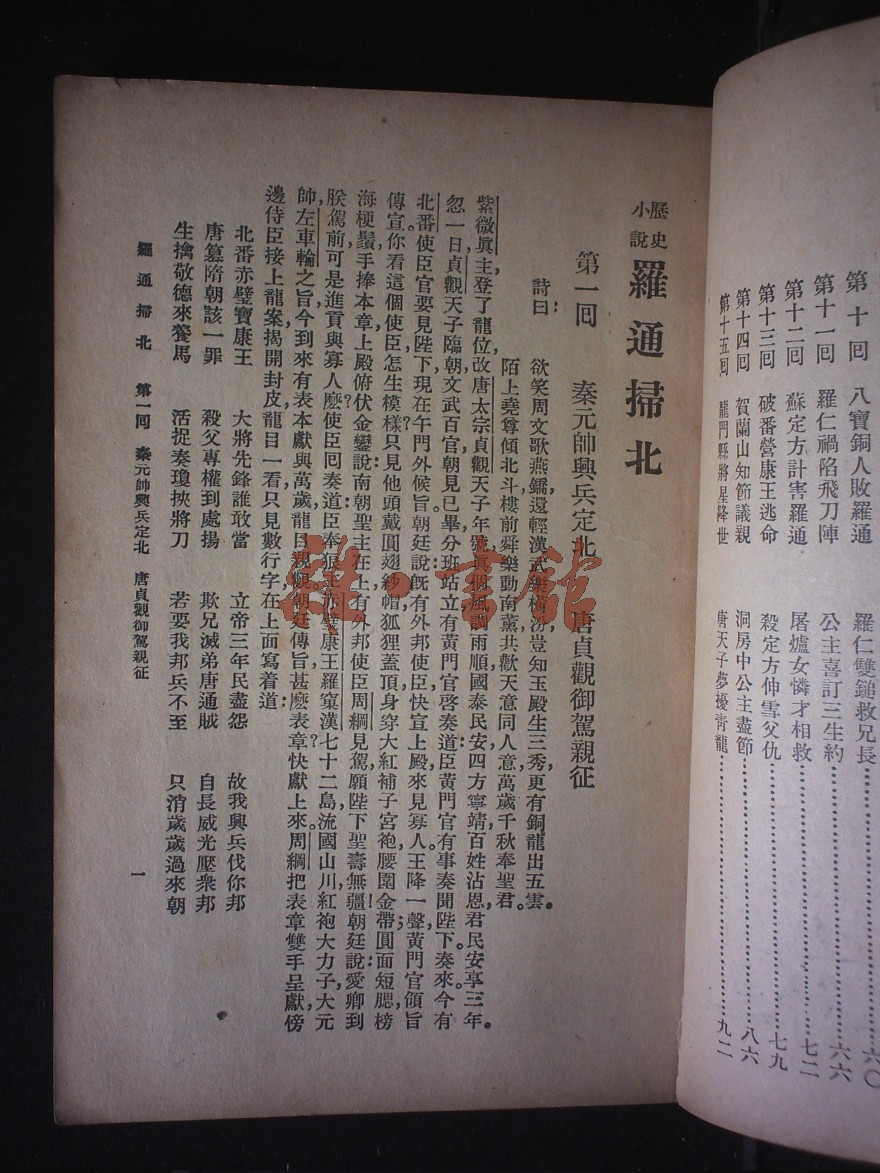 第十回　八寶銅人敗羅通　羅仁雙鎚救兄長……六〇
第十一回　羅仁禍陷飛刀陣　公主喜訂三生約……六六
第十二回　蘇定方計害羅通　屠爐女憐才相救……七二
第十三回　破番營康王逃命　殺定方伸雪父仇……七九
第十四回　賀蘭山知節議親　洞房中公主盡節……八六
第十五回　龍門縣將星降世　唐天子夢擾青龍……九二
歷史小說　羅通掃北
第一回　秦元帥興兵定北　唐貞觀御駕親征
詩曰：　欲笑周文歌燕鎬，還輕漢武樂橫汾，豈知玉殿生三秀，更有銅龍出五雲。
陌上堯尊傾北斗，樓前舜樂動南薰，共歡天意同人意，萬歲千秋奉聖君。
紫微眞主，登了龍位，改唐太宗貞觀天子年號，眞個風調雨順，國泰民安，四方寧靖，百姓沾恩，君民安享三年。
忽一日，貞觀天子臨朝，文武百官朝見已畢，分班站立，有黃門官啓奏道：臣黃門官有事奏聞陛下。奏來。今有
北番使臣官要見陛下，現在午門外候旨。朝廷說：旣有外邦使臣，快宣上殿來見寡人。王降一聲，黃門官領旨
傳宣。你看這個使臣怎生模樣？只見他頭戴圓翅紗帽，狐狸蓋頂，身穿大紅補子宮袍，腰圍金帶；圓面短腮，榜
海梗鬚，手捧本章，上殿俯伏金鑾說：南朝聖主在上，有外邦使臣周綱見駕，願陛下聖壽無疆！朝廷說：愛卿到
朕駕前，可是進貢與寡人麽？使臣回奏道：臣奉狼主赤壁康王羅窠漢，七十二島流國山川紅袍大力子大元
帥左車輪之旨，今到來有表本獻與萬歲龍目親覩。朝廷傳旨：甚麽表章？快獻上來。周綱把表章雙手呈獻，傍
邊侍臣接上龍案，揭開封皮，龍目一看，只見數行字，在上面寫着道：
北番赤璧寶康王　大將先鋒誰敢當　立帝三年民盡怨　故我興兵伐你邦
唐篡隋朝該一罪　殺父專權到處揚　欺兄滅弟唐通賊　自長威光壓衆邦
生擒敬德來養馬　活捉奏瓊挾將刀　若要我邦兵不至　只消歲歲過來朝
羅通掃北　第一回　秦元帥興兵定北　唐貞觀御駕親征　一
雜·書館